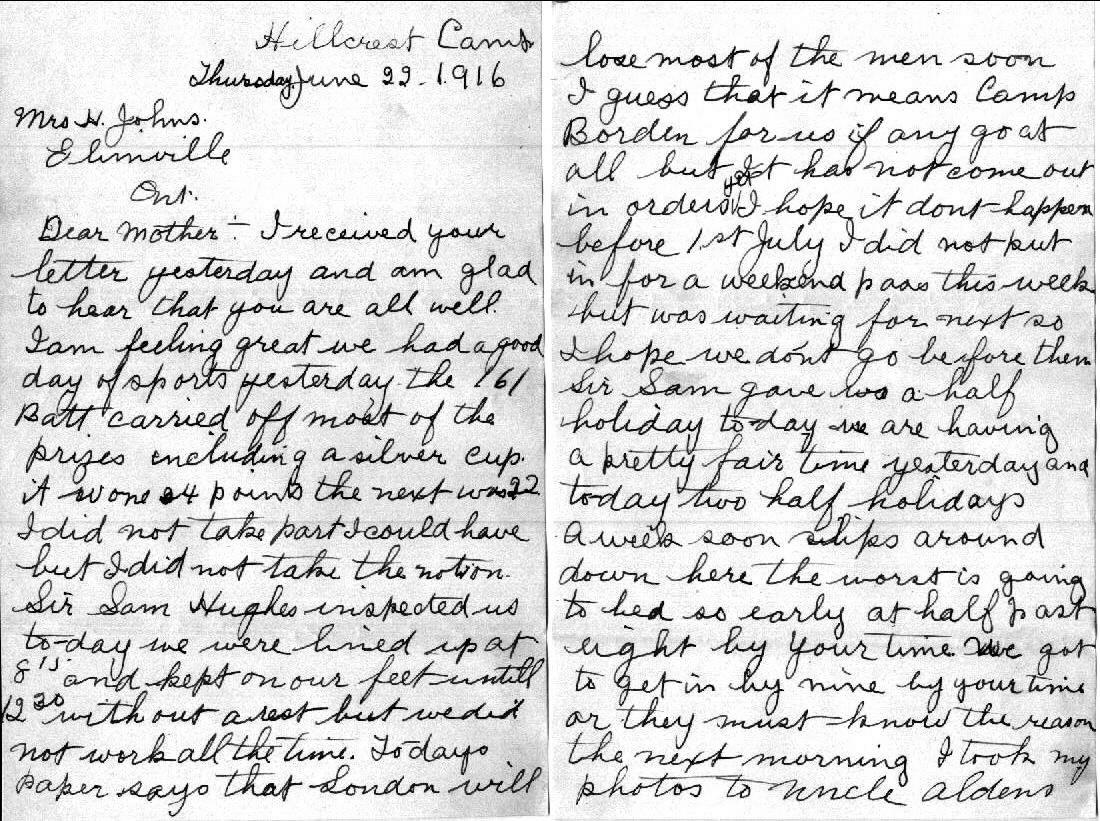 Hillcrest Camp
Thursday June 22-1916
Mrs H. Johns.
Elimville
Ont.
Dear Mother:- I received your
letter yesterday and am glad
to hear that you are all well.
I am feeling great we had a good
day of sports yesterday. the 161
Batt carried off most of the
prizes including a silver cup.
it won 24 points the next was 22
I did not take part I could have
but I did not take the notion.
Sir Sam Hughes inspected us
to-day we were lined up at
8 15 and kept on our feet untill
12 30 without a rest but we did
not work all the time. To days
paper says that London will
lose most of the men soon
I guess that it means Camp
Borden for us if any go at
all but it has not come out
in orders yet I hope it dont happen
before 1st July I did not put
in for a weekend pass this week
but was waiting for next so
I hope we don't go before then
Sir Sam gave us a half
holiday to-day we are having
a pretty fair time yesterday and
today two half holidays
a week soon slips around
down here the worst is going
to bed so early at half past
eight by your time we got
to get in by nine by your time
or they must know the reason
the next morning I took my
photos to Uncle Aldens